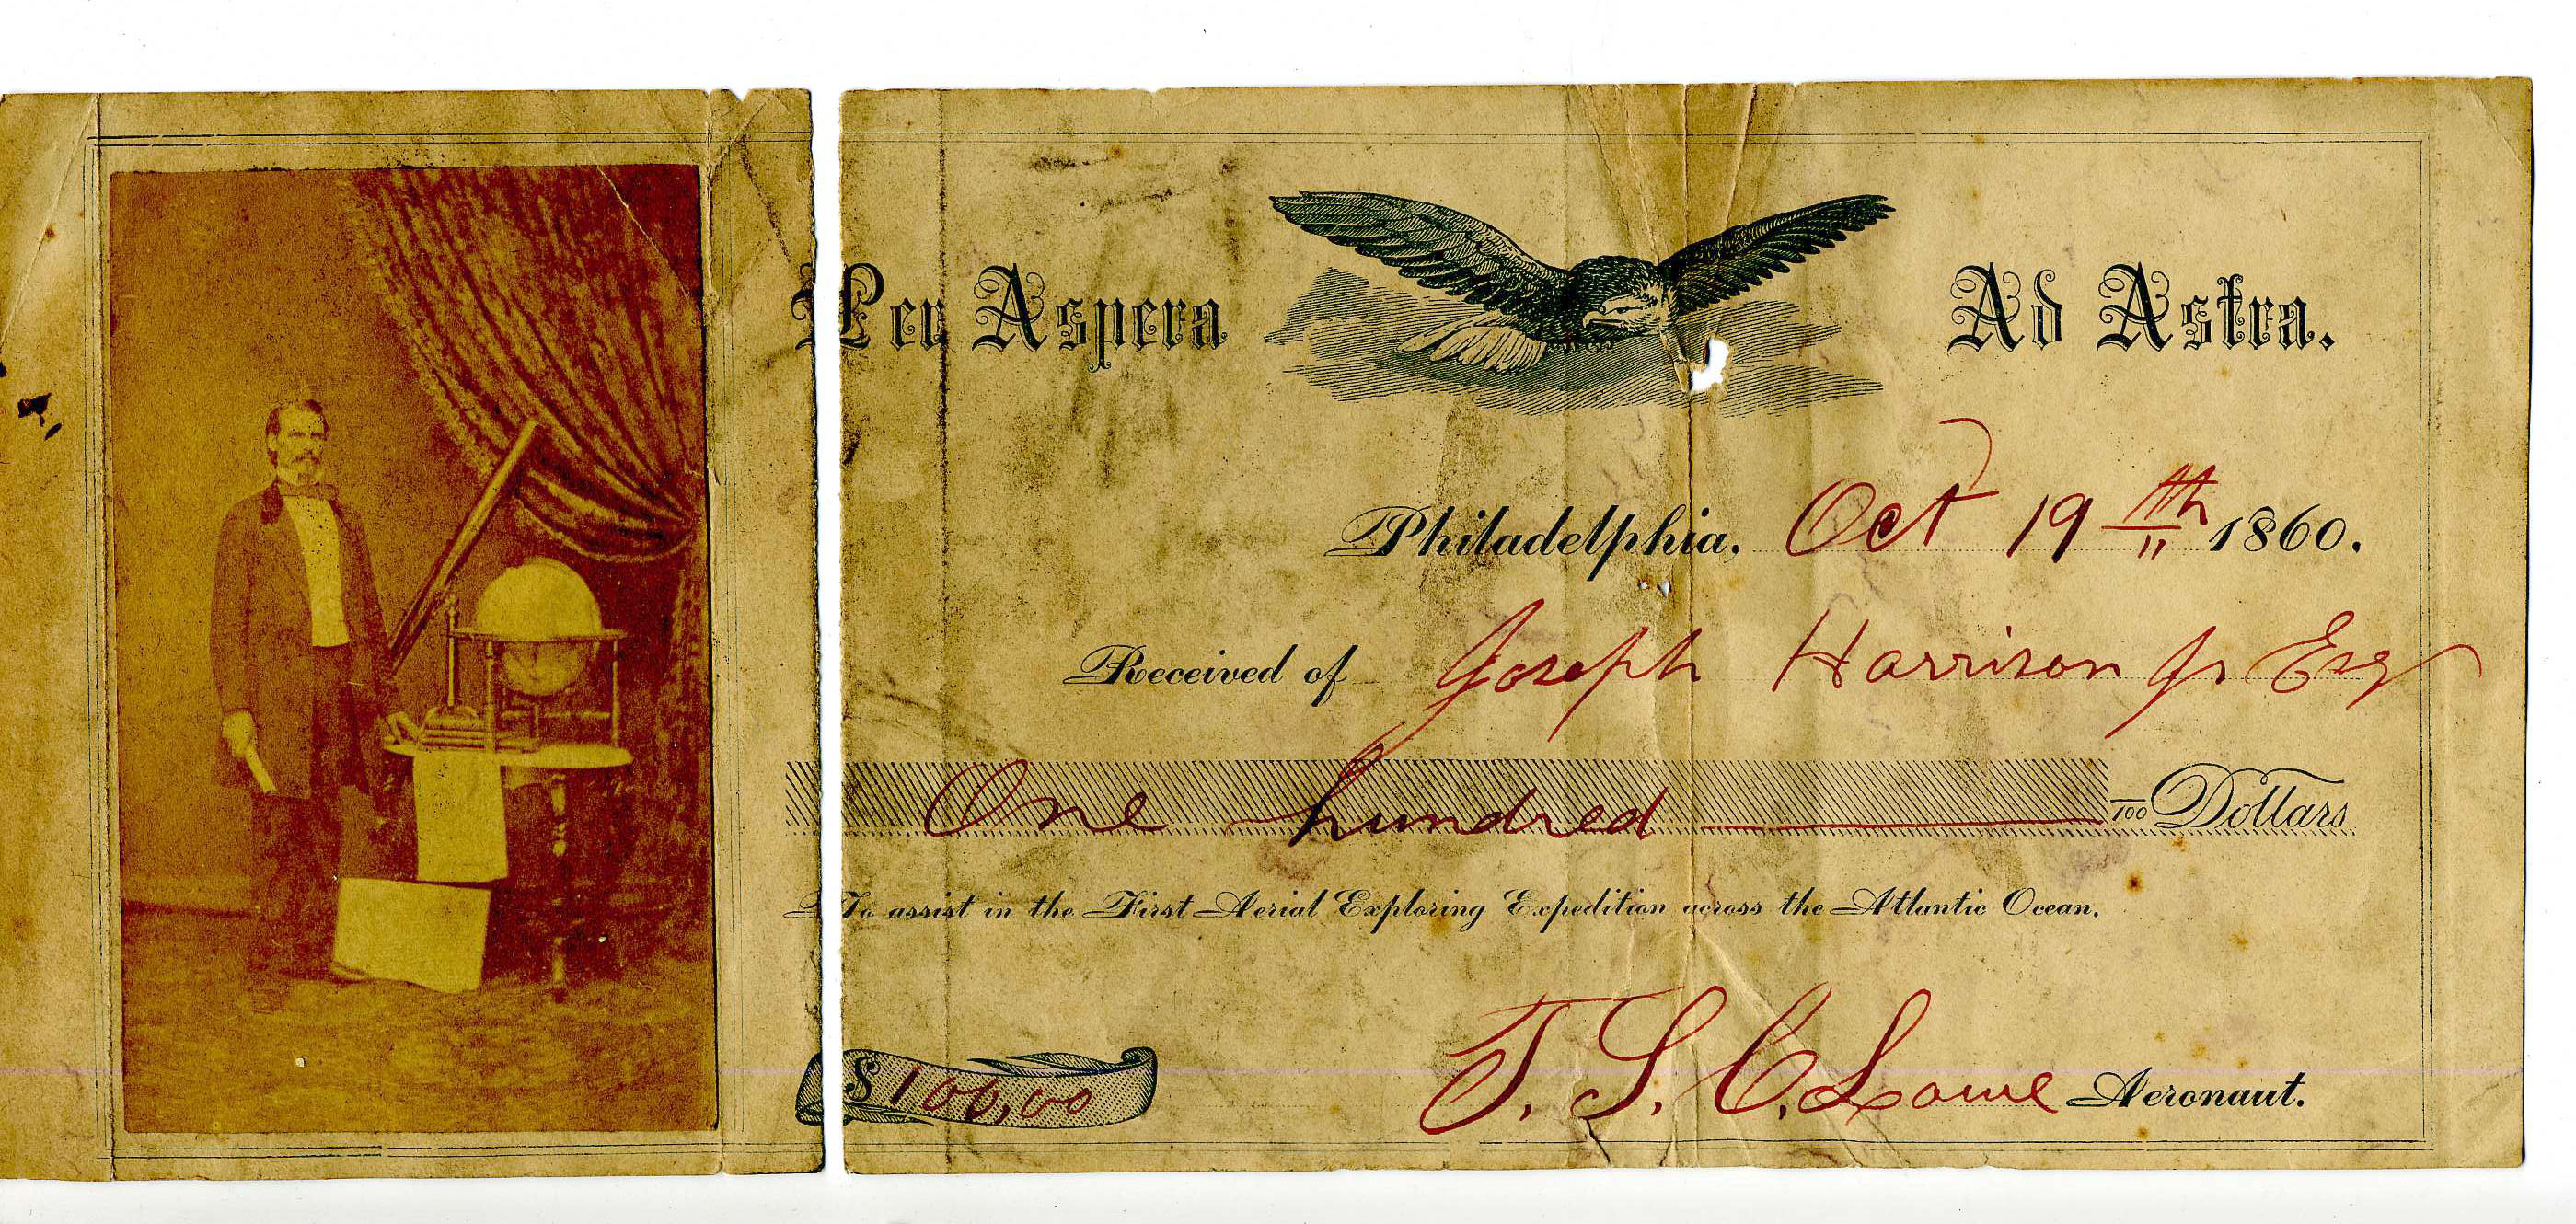 Per Aspera Ad Astra.
Philadelphia, Oct 19th 1860.
Received of Joseph Harrison Jr Esq
One hundred /100 Dollars
To assist in the First Aerial Exploring Expedition across the Atlantic Ocean.
$100,00
T. S. C. Lowe Aeronaut.